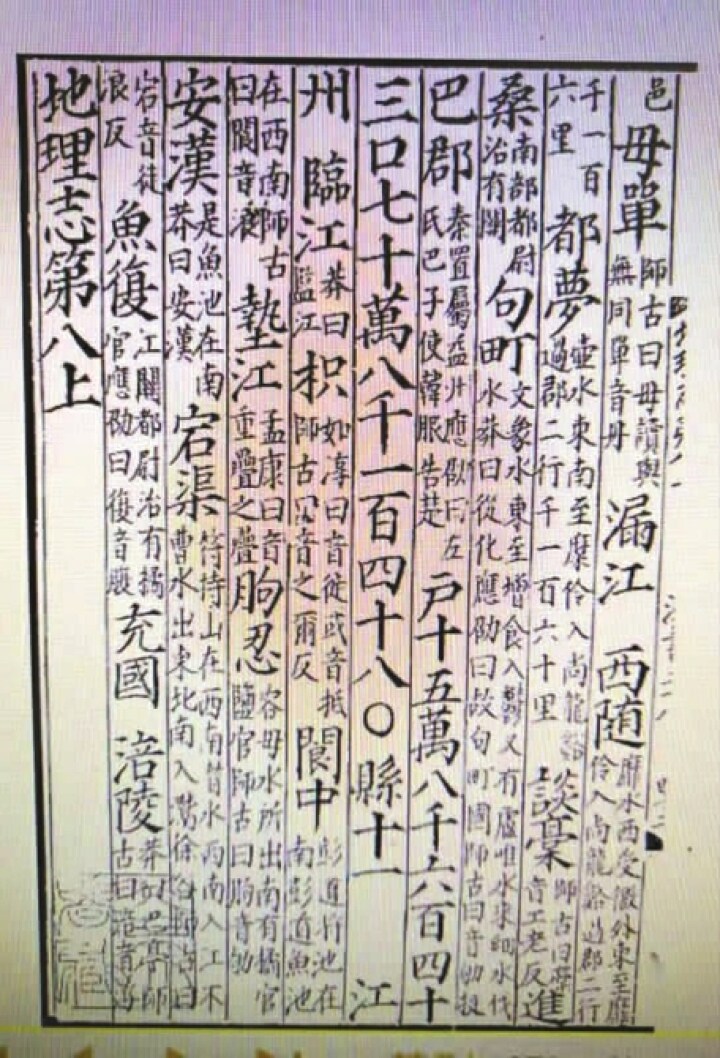 邑 毋單 師古曰毋讀與無同單音丹 漏江 西随 麋水西受徼外東至麋伶入尚龍谿過郡二行
千一百六里 都夢 壺水東南至麋伶入尚龍谿過郡二行千一百六十里 談槀 師古曰槀音工老反 進
桑 南部都尉治有關 句町 文象水東至增食入鬱又有盧唯水來細水伐水莽曰從化應劭曰故句町國師古曰音劬挺
巴郡 秦置屬益州應劭曰左氏巴子使韓服告楚 戶十五萬八千六百四十
三口七十萬八千一百四十八〇縣十一 江
州 臨江 莽曰監江 枳 如淳曰音徙或音抵師古曰音之爾反 閬中 彭道將池在南彭道魚池
在西南師古曰閬音浪 墊江 孟康曰音重疊之疊 朐忍 容毋水所出南有橘官鹽官師古曰朐音劬
安漢 是魚池在南莽曰安漢 宕渠 符特山在西南潜水西南入江不曹水出東北南入灊徐谷師古曰
宕音徒浪反 魚復 江關都尉治有橘官應劭曰復音腹 充國 涪陵 莽曰巴亭師古曰涪音浮
地理志第八上